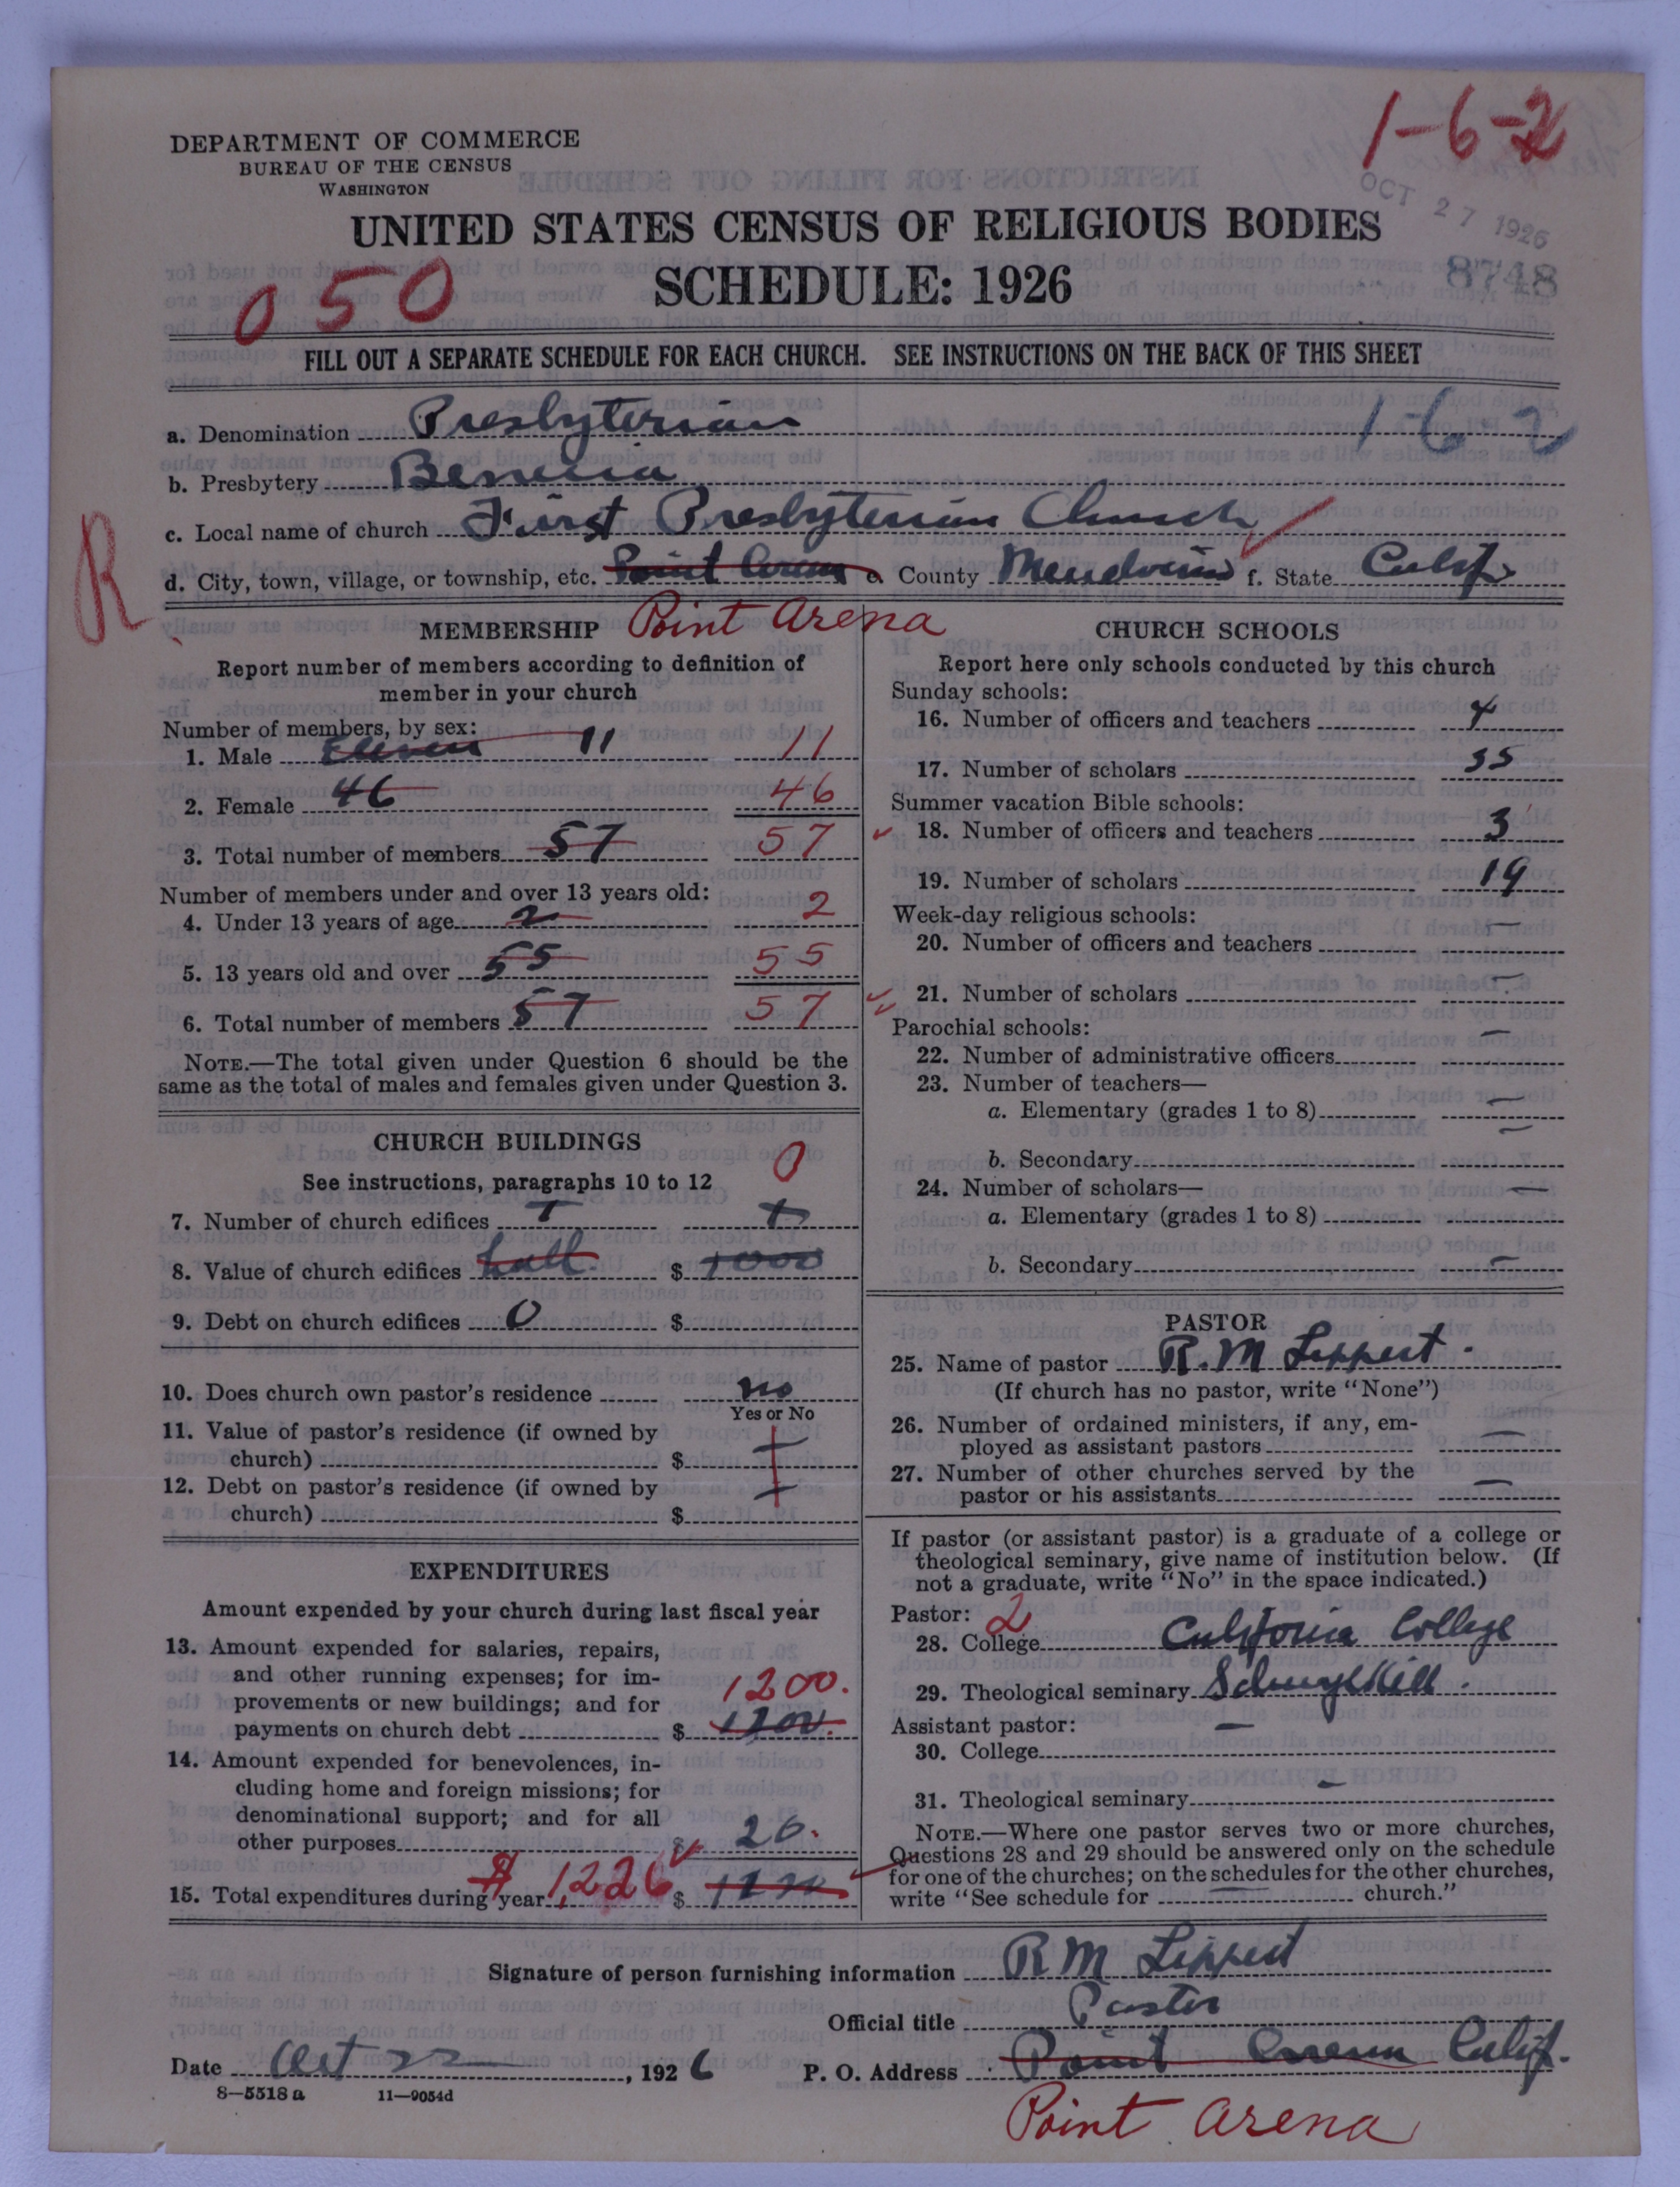 1-6-2
OCT 27 1926
8748
DEPARTMENT OF COMMERCE
BUREAU OF THE CENSUS
WASHINGTON
UNITED STATES CENSUS OF RELIGIOUS BODIES
SCHEDULE: 1926
050
FILL OUT A SEPARATE SCHEDULE FOR EACH CHURCH. SEE INSTRUCTIONS ON THE BACK OF THIS SHEET
a. Denomination Presbyterian 1-6-2
b. Presbytery Benicia
c. Local name of church First Presbyterian Church
R
d. City, town, village, or township, etc. Point Arena e. County Mendocino f. State Calif.
Point Arena
MEMBERSHIP
Report number of members according to definition of
member in your church
Number of members, by sex:
1. Male Eleven 11 11
2. Female 46 46
3. Total number of members 57 57
Number of members under and over 13 years old:
4. Under 13 years of age 2 2
5. 13 years old and over 55 55
6. Total number of members 57 57
NOTE.—The total given under Question 6 should be the
same as the total of males and females given under Question 3.
CHURCH BUILDINGS
See instructions, paragraphs 10 to 12
0
7. Number of church edifices 1 1
8. Value of church edifices hall. $ 1000
9. Debt on church edifices 0 $
10. Does church own pastor's residence no
Yes or No
11. Value of pastor's residence (if owned by
church) $ —
12. Debt on pastor's residence (if owned by
church) $ —
EXPENDITURES
Amount expended by your church during last fiscal year
13. Amount expended for salaries, repairs,
and other running expenses; for im-
provements or new buildings; and for
payments on church debt $ 1200.
1200.
14. Amount expended for benevolences, in-
cluding home and foreign missions; for
denominational support; and for all
other purposes $ 26.
15. Total expenditures during year $ 1,226 $
CHURCH SCHOOLS
Report here only schools conducted by this church
Sunday schools:
16. Number of officers and teachers 4
17. Number of scholars 35
Summer vacation Bible schools:
18. Number of officers and teachers 3
19. Number of scholars 19
Week-day religious schools:
20. Number of officers and teachers —
21. Number of scholars —
Parochial schools:
22. Number of administrative officers —
23. Number of teachers—
a. Elementary (grades 1 to 8) —
b. Secondary —
24. Number of scholars—
a. Elementary (grades 1 to 8) —
b. Secondary —
PASTOR
25. Name of pastor R. M Lippert.
(If church has no pastor, write "None")
26. Number of ordained ministers, if any, em-
ployed as assistant pastors —
27. Number of other churches served by the
pastor or his assistants —
If pastor (or assistant pastor) is a graduate of a college or
theological seminary, give name of institution below. (If
not a graduate, write "No" in the space indicated.)
Pastor: 2
28. College California College
29. Theological seminary Schuylkill.
Assistant pastor:
30. College —
31. Theological seminary —
NOTE.—Where one pastor serves two or more churches,
Questions 28 and 29 should be answered only on the schedule
for one of the churches; on the schedules for the other churches,
write "See schedule for — church."
Signature of person furnishing information R M Lippert
Official title Pastor
Date Oct 22, 1926 P. O. Address Point Arena Calif.
8—5518 a 11—9054d
Point Arena